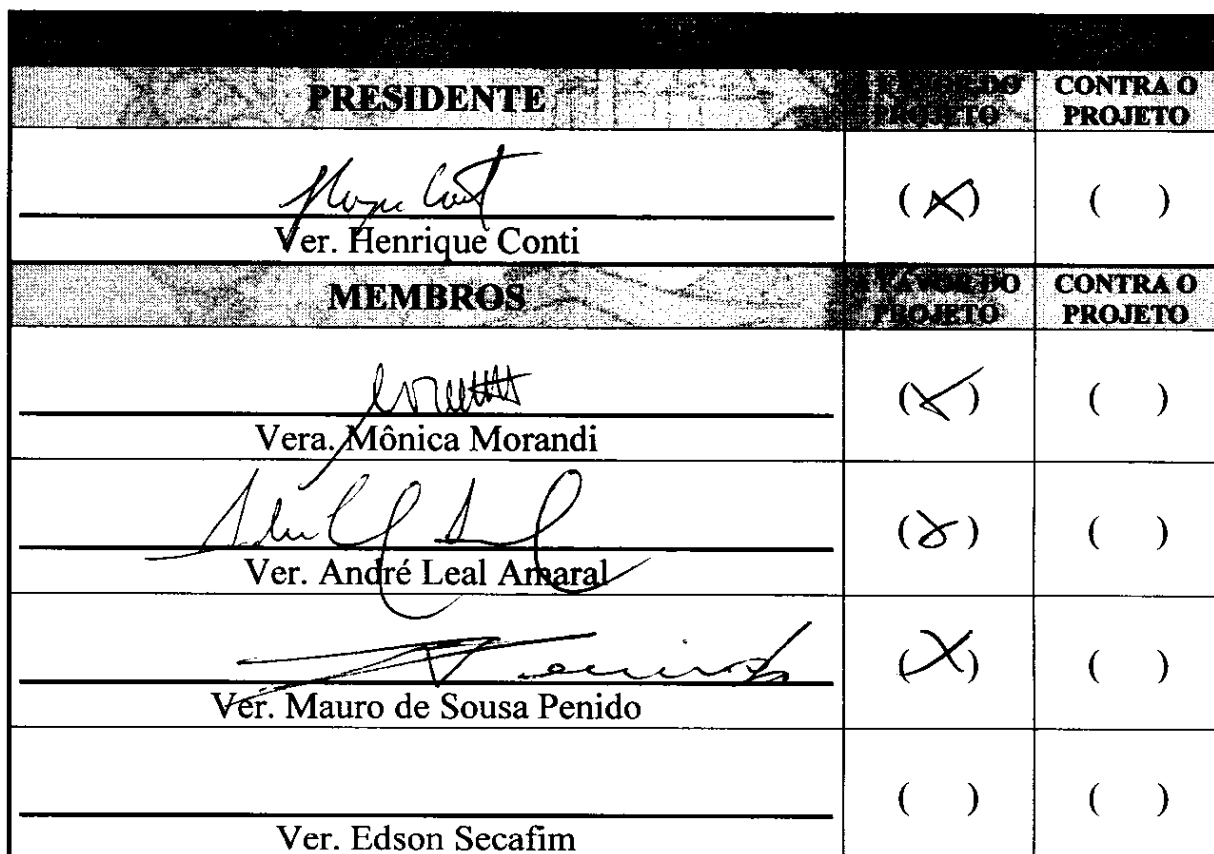 PRESIDENTE
A FAVOR DO PROJETO
CONTRA O PROJETO
Ver. Henrique Conti
(X)
( )
MEMBROS
A FAVOR DO PROJETO
CONTRA O PROJETO
Vera. Mônica Morandi
(X)
( )
Ver. André Leal Amaral
(X)
( )
Ver. Mauro de Sousa Penido
(X)
( )
Ver. Edson Secafim
( )
( )